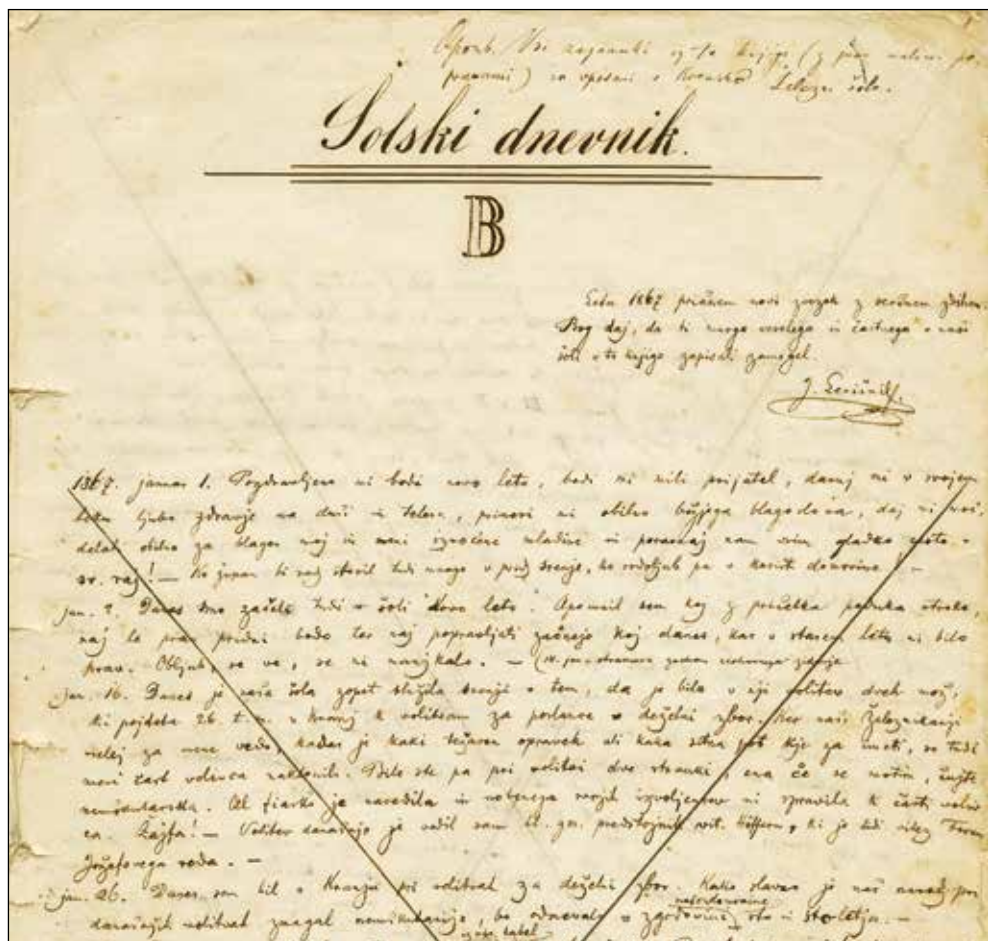 Opomb. Vsi zaznamki iz te knjige (z
so vpisani v kroniko Železn. šole.
Šolski dnevnik.
B
Leta 1867 pričnem novi zvezek z srčnem
Bog daj, da bi mnogo veselega in častnega o naši
šoli v to knjigo zapisati zamogel.
J. Levičnik
1867. januar 1. Pozdravljeno mi bodi novo leto, bodi mi mili prijatel, daruj mi v svojem
teku ljubo zdravje na duši in telesu, prinesi mi obilno božjega blagoslova, daj mi moč,
delati obilno za blagor moj in meni izročene mladine in poravnaj nam vsim gladko pot v
sv. raj! — Ko župan bi rad storil tudi mnogo v prid srenje, ko rodoljub pa v korist domovine. —
Jan. 2. Danes smo začeli tudi v šoli "Novo leto". Opomnil sem koj z početka poduka otroke,
naj le prav pridni bodo ter naj popravljati začnejo koj danes, kar v starem letu ni bilo
prav. Obljub, se ve, se ni manjkalo. —
Jan. 16. Danes je naša šola zopet služila srenji v tem, da je bila v nji volitev dveh mož,
ki pojdeta 26. t. m. v Kranj k volitvam za poslance v deželni zbor. Ker naši Železnikarji
selej za mene vedo, kadar je kaki težaven opravek ali kaka sitna pot kje za imeti, so tudi
meni čast volivca naklonili. Bile ste pa pri volitvi dve stranki, ena če se ne motim,
nemškutarska. Al fiasko je naredila in nobenega svojih izvoljencev ni spravila k časti voliv-
ca. Kajfa! — Volitev današnjo je vodil sam c. k. gn. predstojnik vit. Höffern, ki je tudi vitez Franc
Jožefovega reda. —
Jan. 26. Danes sem bil v Kranju pri volitvah za deželni zbor. Kako slavno je naš narod pri
današnjih volitvah zmagal nemškutarije, bo odmevalo v zgodovini sto in stoletja. —